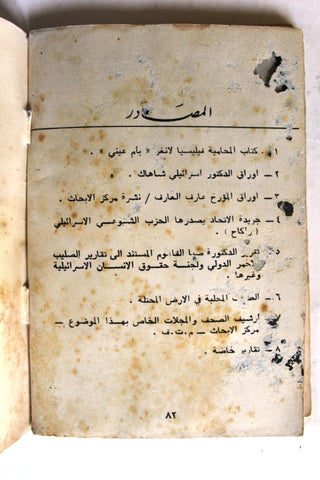 المصادر
١ ـ كتاب المحامية فيليسيا لانغر « بأم عيني » .
٢ ـ أوراق الدكتور اسرائيلي شاهاك .
٣ ـ أوراق المؤرخ عارف العارف / نشرة مركز الابحاث .
٤ ـ جريدة الاتحاد يصدرها الحزب الشيوعي الاسرائيلي
( راكاح ) .
٥ ـ تقرير الدكتورة صبا الفاهوم المستند الى تقارير الصليب
الاحمر الدولي ولجنة حقوق الانسان الاسرائيلية
وغيرها .
٦ ـ الصحف المحلية في الارض المحتلة .
٧ ـ أرشيف الصحف والمجلات الخاص بهذا الموضوع ـ
مركز الابحاث ـ م.ت.ف .
٨ ـ تقارير خاصة .
٨٢